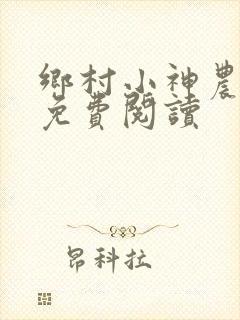 鄉村小神農
免費閱讀
昂科拉